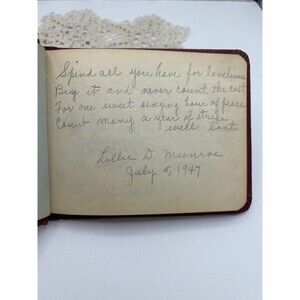 Spend all you have for loveliness
Buy it and never count the cost
For one sweet singing hour of peace
Count many a year of strife
well lost
Lillie D. Munroe
July 5, 1947